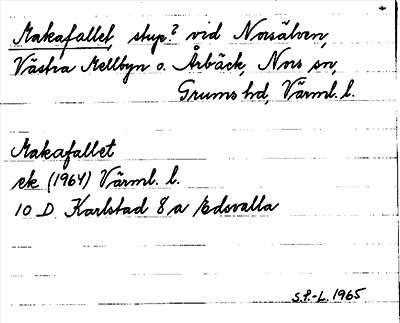 Makafallet, stup? vid Norsälven,
Västra Mellbyn o. Årbäck, Nors sn,
Grums hd, Värml. l.
Makafallet
ek (1964) Värml. l.
10 D Karlstad 8 a Edsvalla
S.F.-L. 1965